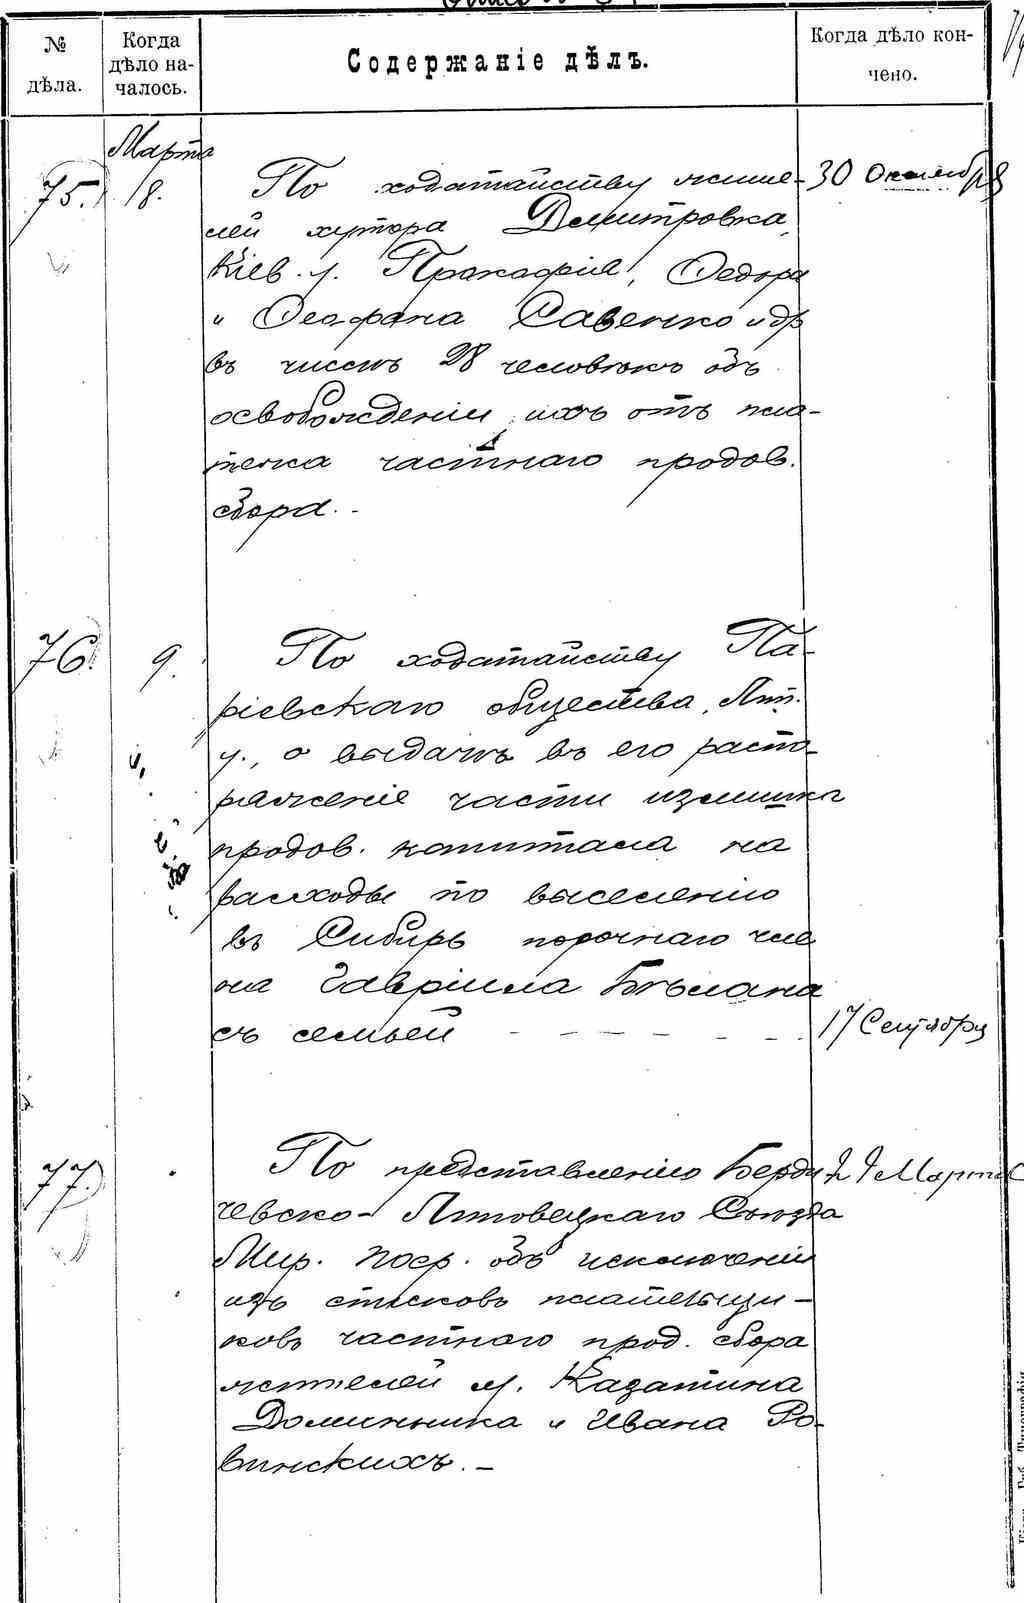 № дѣла.
Когда дѣло на-
чалось.
Содержаніе дѣлъ.
Когда дѣло кон-
чено.
Марта
75. 8. По ходатайству жите- 30 Октября
лей хутора Димитровка,
Кіев. у. Прокофія, Федора
и Феофана Савенко и др
въ числѣ 28 человѣкъ объ
освобожденіи ихъ отъ пла-
тежа частнаго продов.
сбора. -
76. 9. По ходатайству Па-
ріевскаго общества, Лип.
у., о выдачѣ въ его распо-
ряженіе части излишка
продов. капитала на
расходы по выселенію
въ Сибирь порочнаго чле
на Гавріила Бѣлана
съ семьей - - - - - - 17 Сентября
77. По представленію Берди 27 Марта
чевско-Липовецкаго Съѣзда
Мир. поср. объ исключеніи
изъ списковъ плательщи-
ковъ частнаго прод. сбора
жителей м. Казатина
Доминика и Ивана Ро-
винскихъ. -